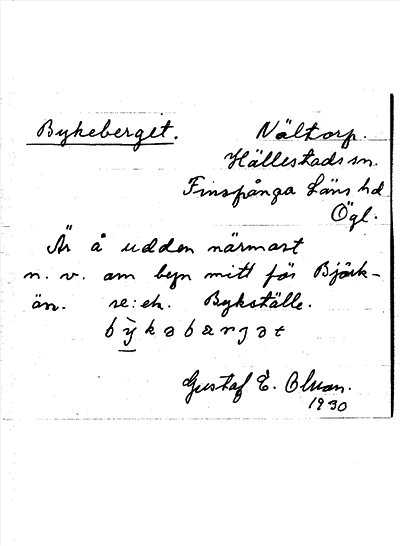 Bykeberget.
Nältorp.
Hällestads sn.
Finspånga Läns hd
Ögl.
Är å udden närmast
n. v. om byn mitt för Björk-
ön. se: ek. Bykställe.
bỳkəbærjət
Gustaf E. Olsson.
1930